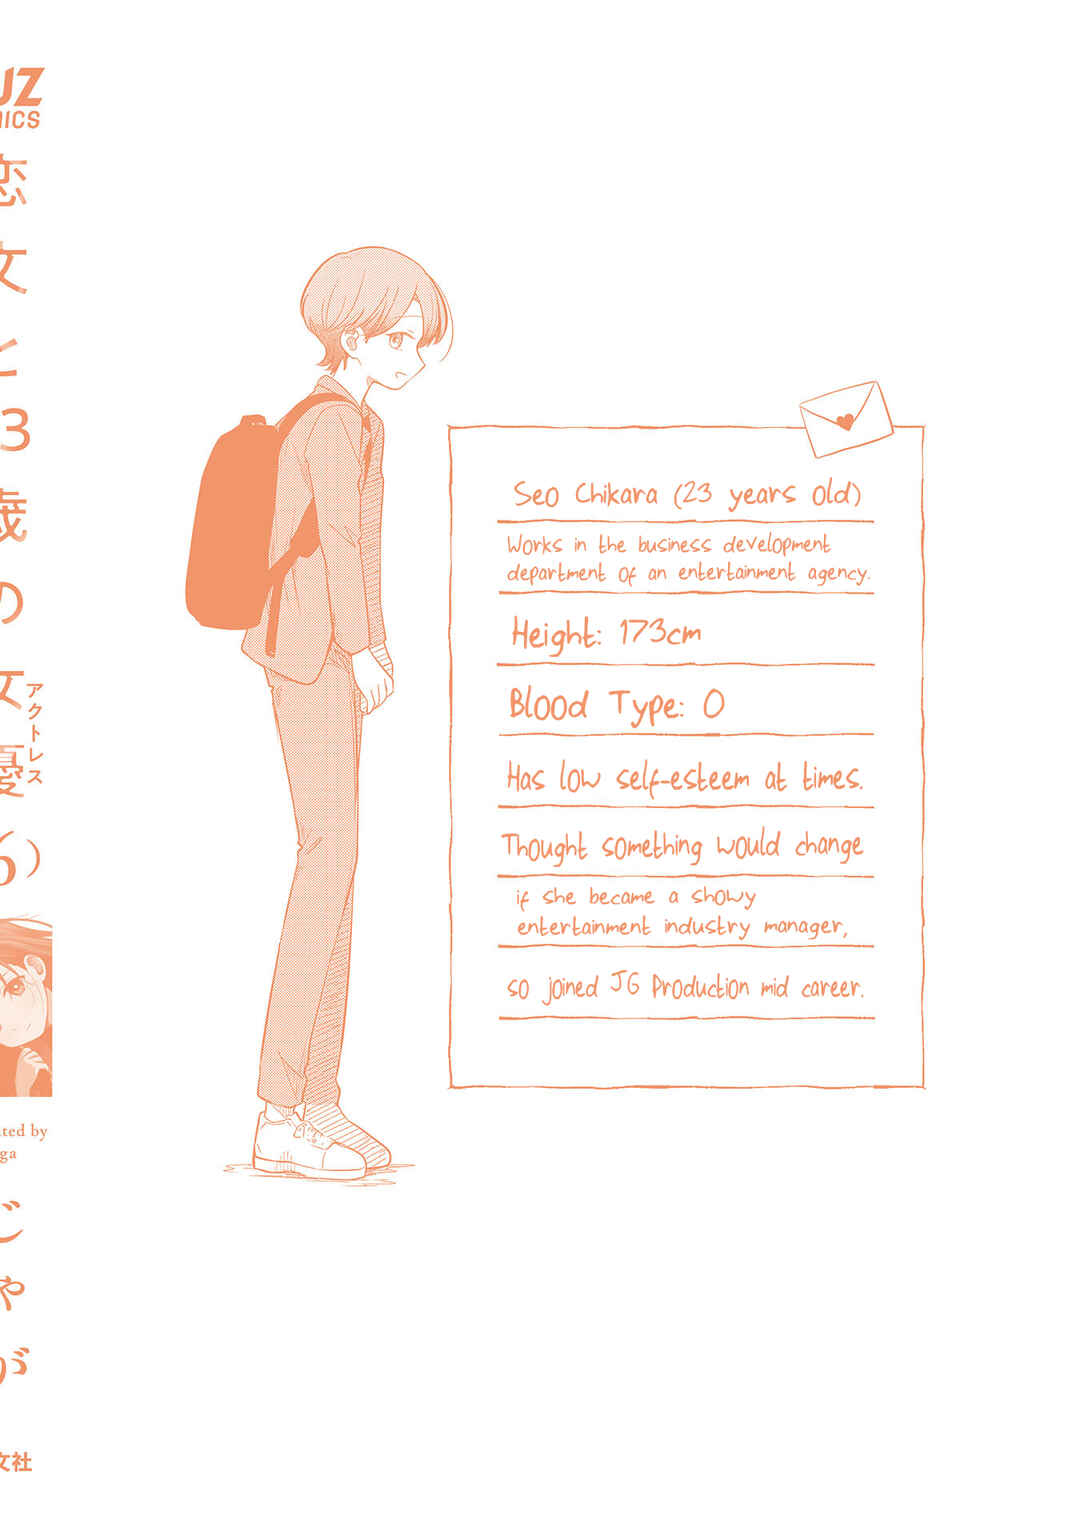 恋文と13歳の女優
アクトレス
6)
じゃが
文社
Seo Chikara (23 years old)
Works in the business development
department of an entertainment agency.
Height: 173cm
Blood Type: O
Has low self-esteem at times.
Thought something would change
if she became a showy
entertainment industry manager,
so joined JG Production mid career.